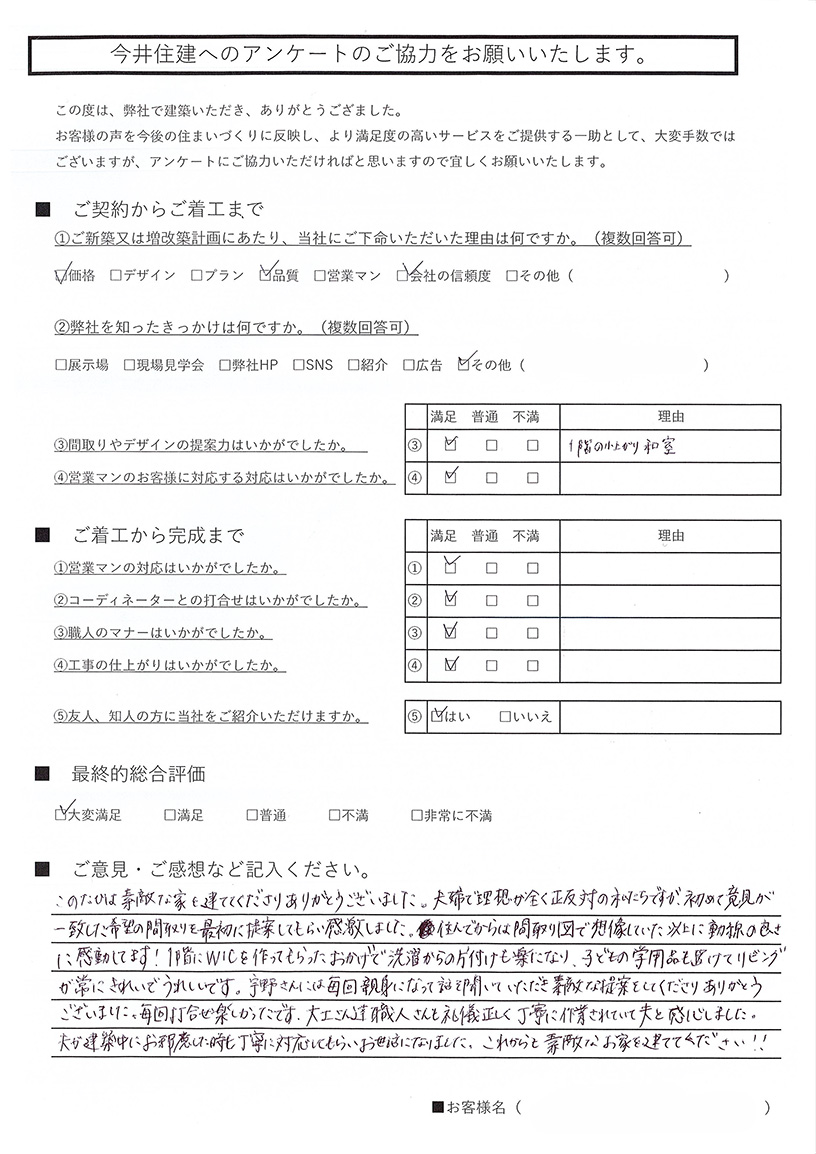 今井住建へのアンケートのご協力をお願いいたします。
この度は、弊社で建築いただき、ありがとうござました。
お客様の声を今後の住まいづくりに反映し、より満足度の高いサービスをご提供する一助として、大変手数では
ございますが、アンケートにご協力いただければと思いますので宜しくお願いいたします。
■ ご契約からご着工まで
①ご新築又は増改築計画にあたり、当社にご下命いただいた理由は何ですか。（複数回答可）
☑価格 □デザイン □プラン ☑品質 □営業マン ☑会社の信頼度 □その他（ ）
②弊社を知ったきっかけは何ですか。（複数回答可）
□展示場 □現場見学会 □弊社HP □SNS □紹介 □広告 ☑その他（ ）
満足 普通 不満 理由
③間取りやデザインの提案力はいかがでしたか。 ③ ☑ □ □ 1階の小上がり和室
④営業マンのお客様に対応する対応はいかがでしたか。 ④ ☑ □ □
■ ご着工から完成まで 満足 普通 不満 理由
①営業マンの対応はいかがでしたか。 ① ☑ □ □
②コーディネーターとの打合せはいかがでしたか。 ② ☑ □ □
③職人のマナーはいかがでしたか。 ③ ☑ □ □
④工事の仕上がりはいかがでしたか。 ④ ☑ □ □
⑤友人、知人の方に当社をご紹介いただけますか。 ⑤ ☑はい □いいえ
■ 最終的総合評価
☑大変満足 □満足 □普通 □不満 □非常に不満
■ ご意見・ご感想など記入ください。
このたびは素敵な家を建ててくださりありがとうございました。夫婦で理想が全く正反対の私たちですが、初めて意見が
一致した希望の間取りを最初に提案してもらい感激しました。住んでからは間取り図で想像していた以上に動線の良さ
に感動してます！1階にWICを作ってもらったおかげで洗濯からの片付けも楽になり、子どもの学用品も置けてリビング
が常にきれいでうれしいです。宇野さんには毎回親身になって話を聞いていただき素敵な提案をしてくださりありがとう
ございました。毎回打合せ楽しかったです。大工さん達職人さんも礼儀正しく丁寧に作業されていて夫と感心しました。
夫が建築中にお邪魔した時も丁寧に対応してもらいお世話になりました。これからも素敵なお家を建ててください！！
■お客様名（ ）